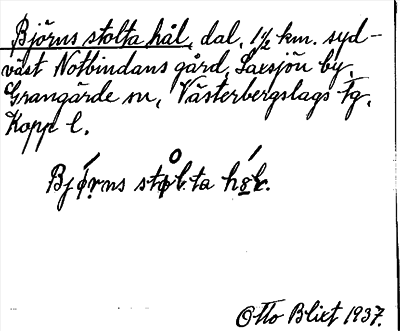 Björns stolta hål, dal, 1½ km. syd-
väst Notbindans gård, Laxsjön by.
Grangärde sn, Västerbergslags tg,
Kopp. l.
Bjǫ́rns stǫl.ta hǫ́l.
Otto Blixt 1937.